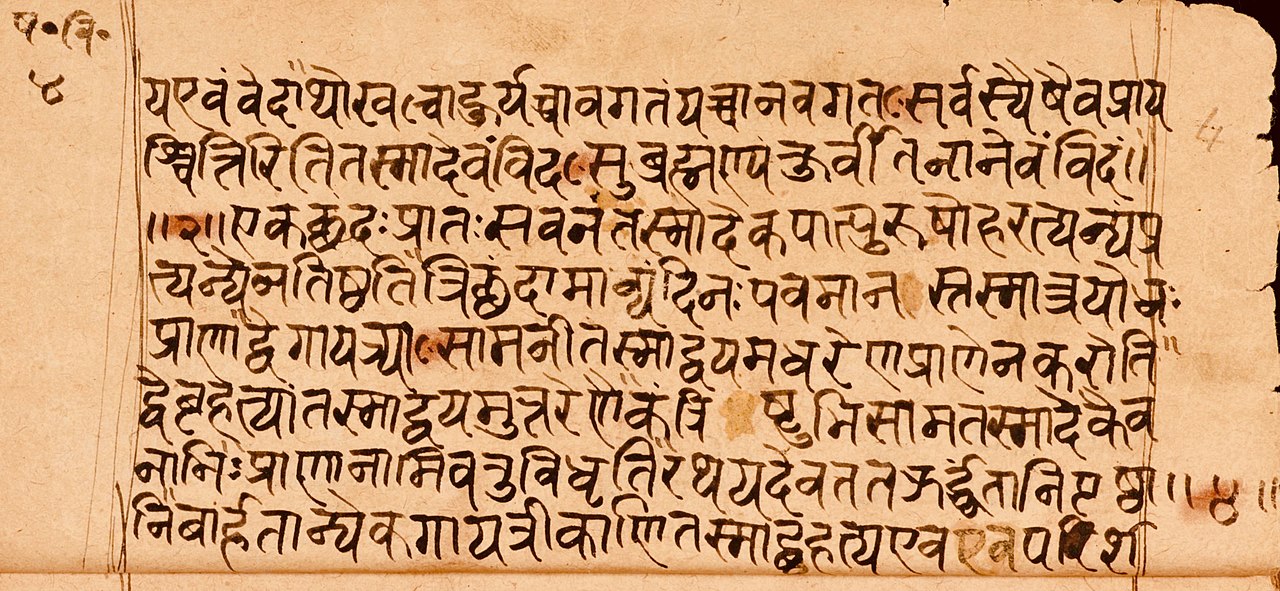 ष॰ वि॰
४
य एवं वेदाथो खल्वाहुर्यच्चावगतं यच्चानवगतꣳ सर्वस्यैषैव प्राय
श्चित्तिरिति तस्मादेवंविदꣳ सुब्रह्मण्यं कुर्वीत नानेवंविदं॥
॥२॥ एकछंदः प्रातःसवनं तस्मादेकपात्पुरुषो हरत्यन्यं प्र
त्यन्येन तिष्ठति त्रिछंदा माध्यंदिनः पवमानस्तस्मात्त्रयोऽधः
प्राणा द्वे गायत्र्याꣳ सामनी तस्माद्द्वयमधरेण प्राणेन करोति
द्वे बृहत्यां तस्माद्द्वयमुत्तरेणैकं त्रिष्टुभि साम तस्मादेकैव
नाभिः प्राणानामिव तु विधृतिरथ यदेव तत ऊर्द्ध्वं तानि पृष्ठा॥४॥
नि बार्हतान्येकगायत्रीकाणि तस्माद्बृहत्य एव एव परिर्श